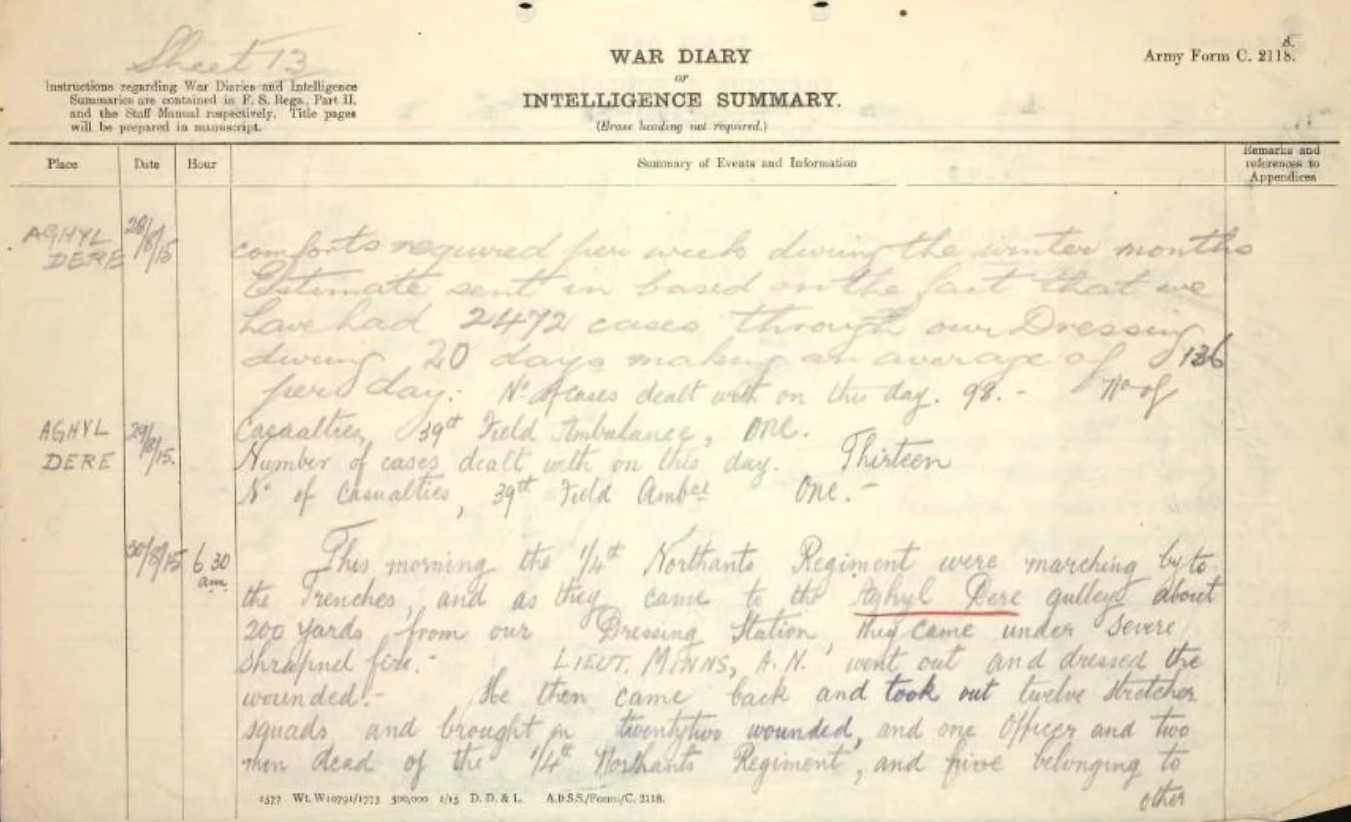 Sheet 13
WAR DIARY
or
INTELLIGENCE SUMMARY.
(Erase heading not required.)
8.
Army Form C. 2118.
Instructions regarding War Diaries and Intelligence
Summaries are contained in F. S. Regs., Part II.
and the Staff Manual respectively. Title pages
will be prepared in manuscript.
Place Date Hour Summary of Events and Information Remarks and
references to
Appendices
AGHYL
DERE 28/8/15 comforts required per week during the winter months
Estimate sent in based on the fact that we
have had 2472 cases through our Dressing
during 20 days making an average of 136
per day. No of cases dealt with on this day. 98.- No of
AGHYL
DERE 29/8/15. Casualties, 39th Field Ambulance, One.
Number of cases dealt with on this day. Thirteen
No of Casualties, 39th Field Ambce One.-
30/8/15 6 30
am This morning the 1/4th Northants Regiment were marching by to
the Trenches, and as they came to the Aghyl Dere gulley about
200 yards from our Dressing Station, they came under severe
Shrapnel fire.- LIEUT. MINNS, A. N. went out and dressed the
wounded.- He then came back and took out twelve stretcher
squads and brought in twentytwo wounded, and one Officer and two
men dead of the 1/4th Northants Regiment, and five belonging to
other
1577 Wt. W10791/1773 500,000 1/15 D. D. & L. A.D.S.S./Forms/C. 2118.